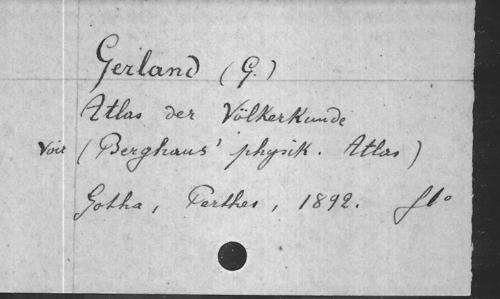 Gerland (G.)
Atlas der Völkerkunde
Voir (Berghaus' physik. Atlas)
Gotha, Perthes, 1892. flo